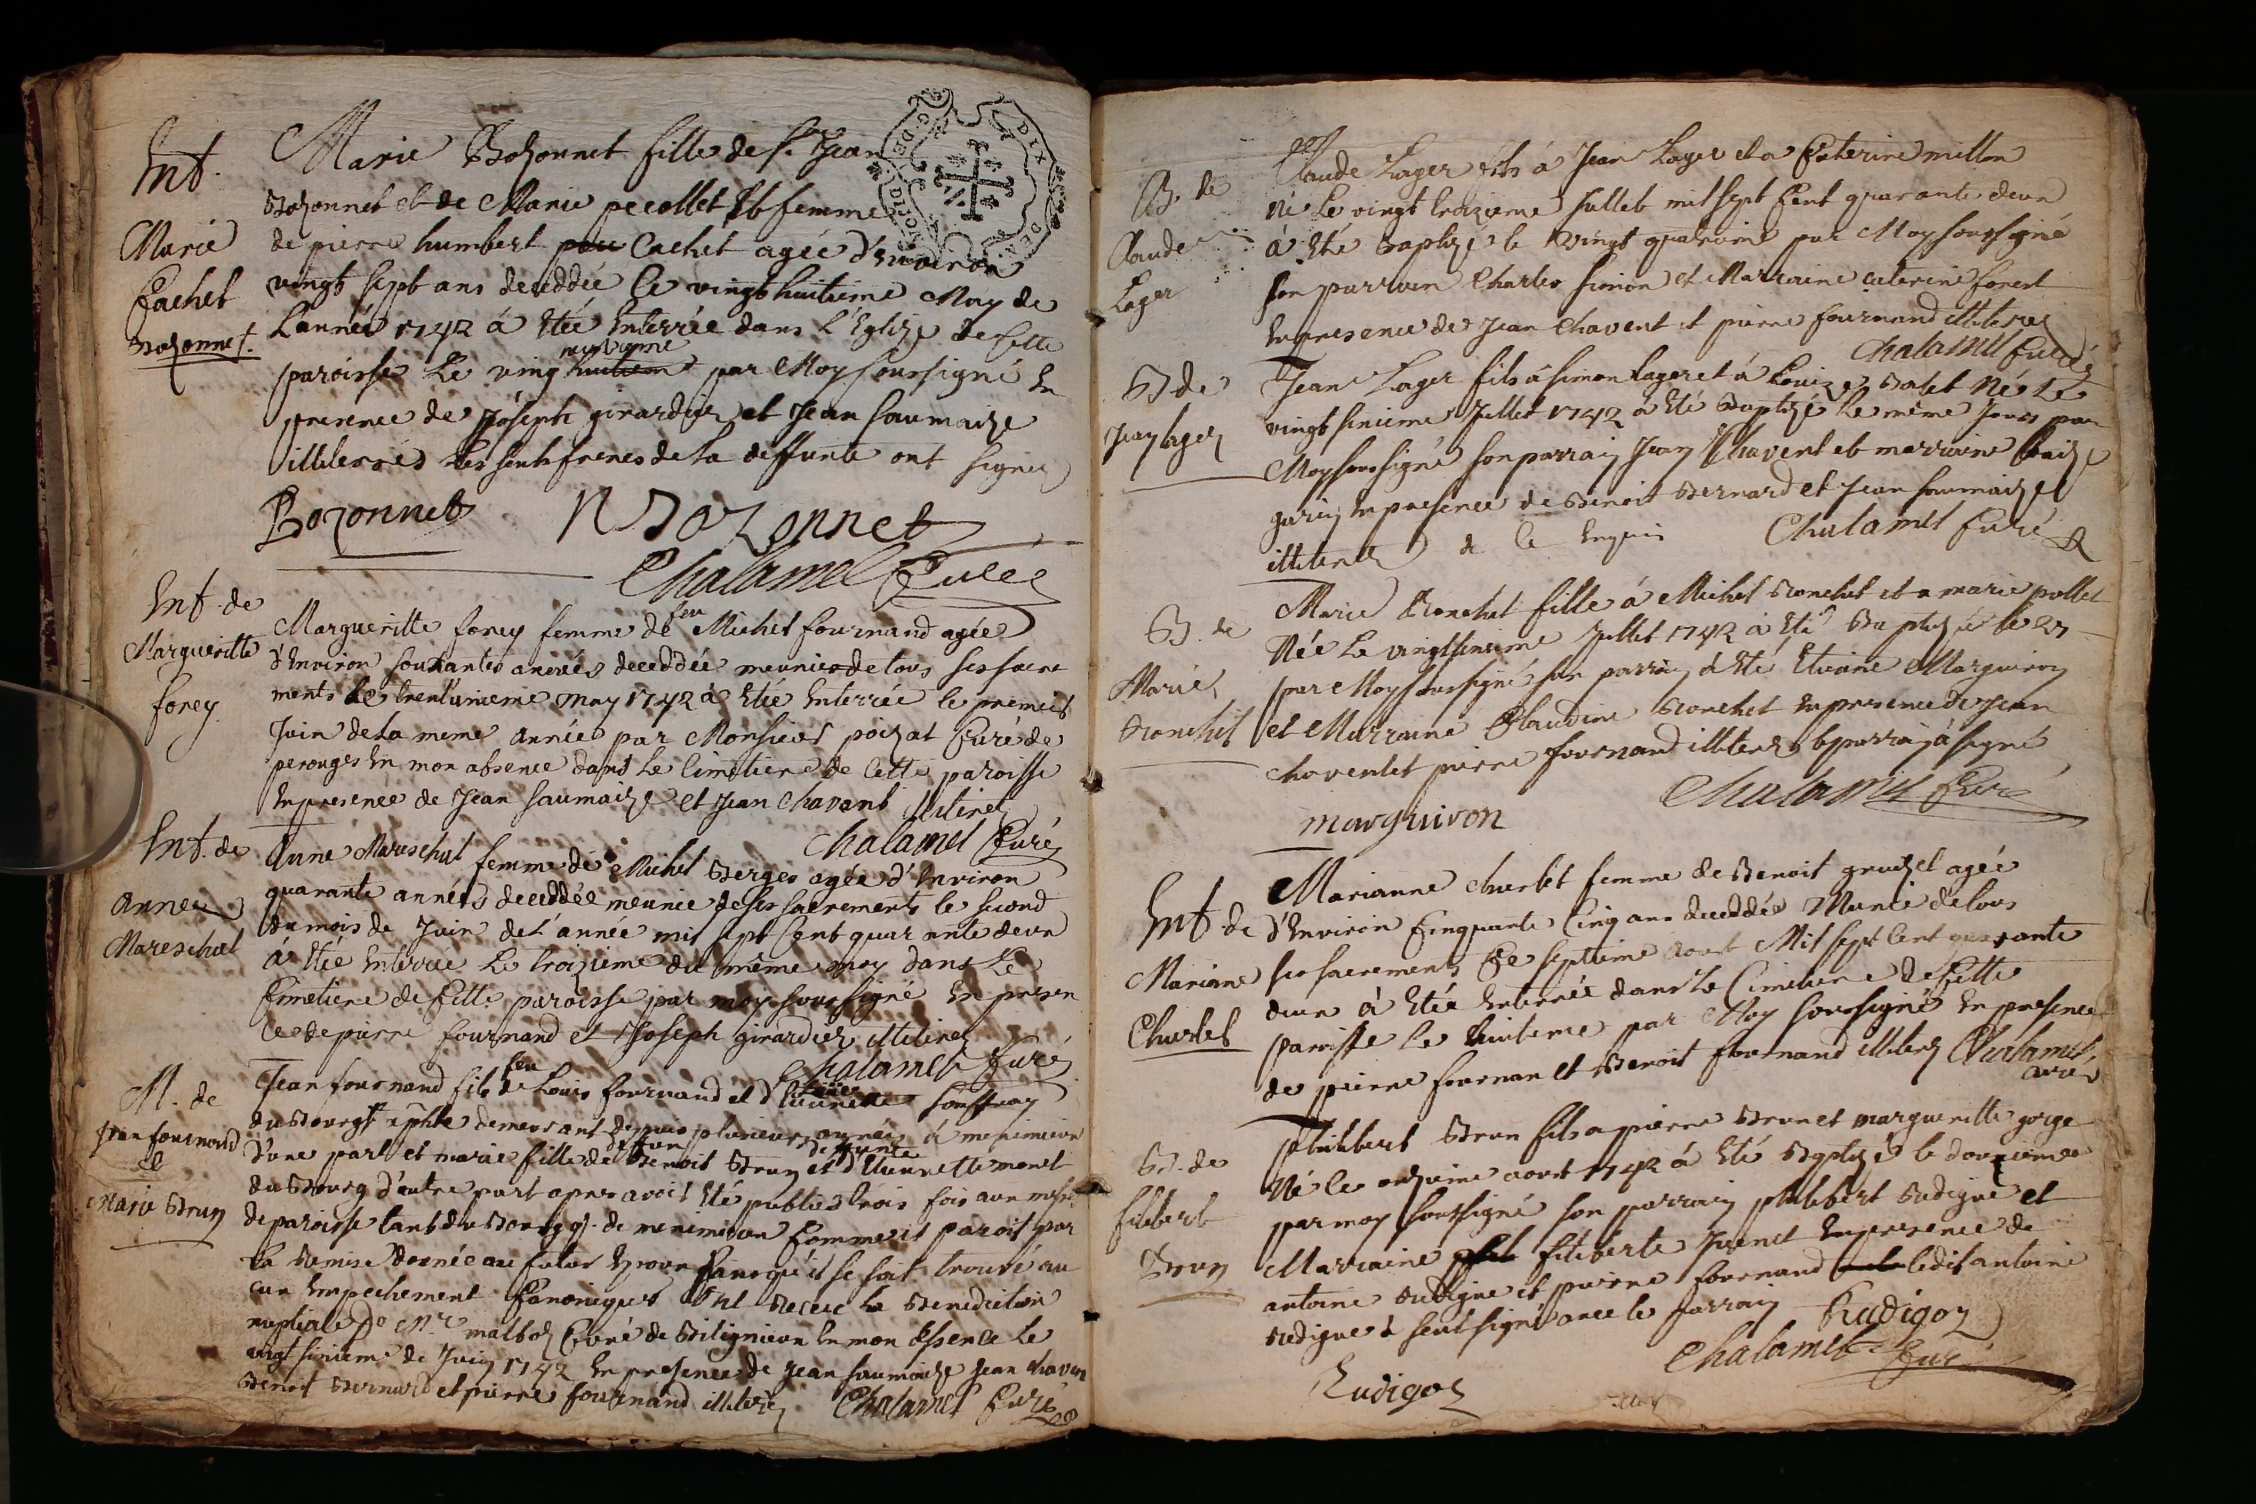 Ent.
Marie
Cachet
Bozonnet.
Marie Bozonnet fille de Sr Jean
Bozonnet et de Marie pecollet Et femme
de pierre humbert Cachet agée d'Environ
vingt sept ans deceddée le vingt huitieme May de
L'année 1742 á Etée Enterrée dans L'Eglize de Cette
paroisse Le ving neuvieme par Moy soussigné En
presence de Joseph girardier et Jean Saumaize
illiterés les freres de La deffunte ont signez
Bozonnet N Bozonnet
Chalamel Curé
Ent. de
Margueritte
forey
Margueritte forey femme de feu Michel fournand agée
d'Environ soixantes années deceddée meunie de tous ses sacre
ments Le trent'unieme may 1742 á Etée Enterrée le premier
Juin de La meme année par Monsieur poizat Curé de
perouges En mon absence dans Le Cimetiere de Cette paroisse
En presence de Jean Saumaize et Jean Chavent illiterez
Chalamel Curé
Ent. de
Anne
Mareschal
Anne Mareschal femme de Michel Berger agée d'Environ
quarante années deceddée meunie de ses sacrements le second
du mois de Juin de L'année mil sept Cent quarante deux
á Etée Enterrée Le troizieme du même moy dans Le
Cimetiere de Cette paroisse par moy soussigné En presen
ce de pierre fournand et Joseph girardier illiterez
Chalamel Curé
M. de
Jean fournand
et
Marie Brun
Jean fournand fils de feu Louis fournand et d' souffray
du Bourgt demeurant depuis plusieurs années á meximieux
d'une part et marie fille de deffun Benoit Brun et deffunte d'Etiennette monet
du Bourg d'autre part apres avoir Eté publiés trois fois aux messe
de paroisse tant du Bourg q. de meximieux Comme il paroit par
La Remise donnée au futur Epoux sans qu'il se soit trouvé au
cun Empechement Canonique ont Receu La Benediction
nuptiale De Mr. malboz Curé de Biligneux En mon absence Le
vingt sixieme de Juin 1742 En presence de Jean saumaize Jean chaven
Benoit Bernard et pierre fournand illiterez Chalamel Curé
B. de
Claude
Lager
Claude Lager fils á Jean Lager et a Caterine millon
né Le vingt troizieme Jullet mil sept Cent quarante deux
á Eté Baptizé le vingt quatrieme par Moy soussigné
son parrain Charles simon et Marraine caterine forest
En presence de Jean Chavent et pierre fournand illiterez
Chalamel Curé
B de
Jean lager
Jean Lager fils á simon Lager et á Louize Balet Né Le
vingt sixieme Jullet 1742 á Eté Baptizé Le même Jours par
Moy soussigné son parrain Jean Chavent et marraine Louize
garin En presence de Benoit Bernard et Jean saumaize
illiterez de ce Enquis Chalamel Curé
B. de
Marie
Bronchet
Marie Bronchet fille á Michel Bronchet et a marie pollet
Née Le vingt sixieme Jullet 1742 á Eté Baptizée le 27
par Moy soussigné son parrain á Eté Etienne Marguiron
et Marraine Claudine Bronchet En presence de Jean
chavent et pierre fournand illiterez le parrain á signé
Chalamel Curé
marguiron
Ent de
Mariane
Churlet
Marianne churlet femme de Benoit gruizel agée
d'Environ Cinquante Cinq ans deceddée Munie de tous
ses sacrements Le septieme aoust Mil sept Cent quarante
deux á Etée Enterrée dans Le Cimetiere de Cette
paroisse le huitieme par Moy soussigné En presence
de pierre fournan et Benoit fournand illiterez Chalamel
curé
B. de
filibert
Brun
philibert Brun fils a pierre Brun et margueritte gorge
Né le onzieme aout 1742 á Eté Baptizé le douzieme
par moy soussigné son parrain philibert Rudigoz et
Marraine filiberte Juenet En presence de
antoine Rudigoz et pierre fournand ledit antoine
Rudigoz á seul signé avec le parrain Rudigoz
Chalamel Curé
Rudigoz